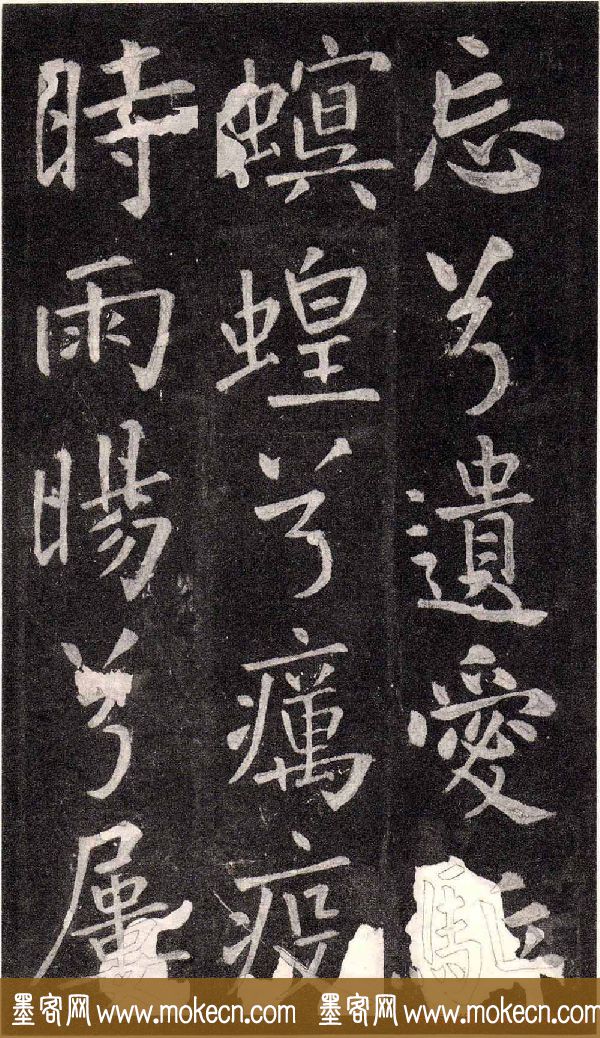 忘兮遺愛驅
螟蝗兮癘疫
時雨暘兮屢
墨客网 www.mokecn.com 墨客网 www.mokecn.com